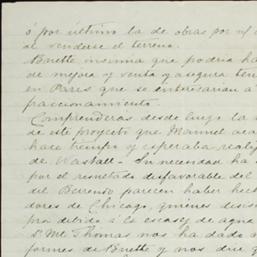 ó por último la de obras por n/c
de venderse el terreno.
Buette insinua que podria ha
de mejora y venta y asegura ten
en Paris que se interesarian a
fraccionamiento.
Comprenderas desde luego la a
de este proyecto que Manuel aca
hace tiempo y esperaba reali
de Wastall - Su necedad ha s
por el resultado desfavorable del
del Berrendo parecen haber hech
dores de Chicago, quienes desis
pra debido á la escasez de agua
Sr. Mc Thomas nos ha dado a
formes de Buette y nos dice q